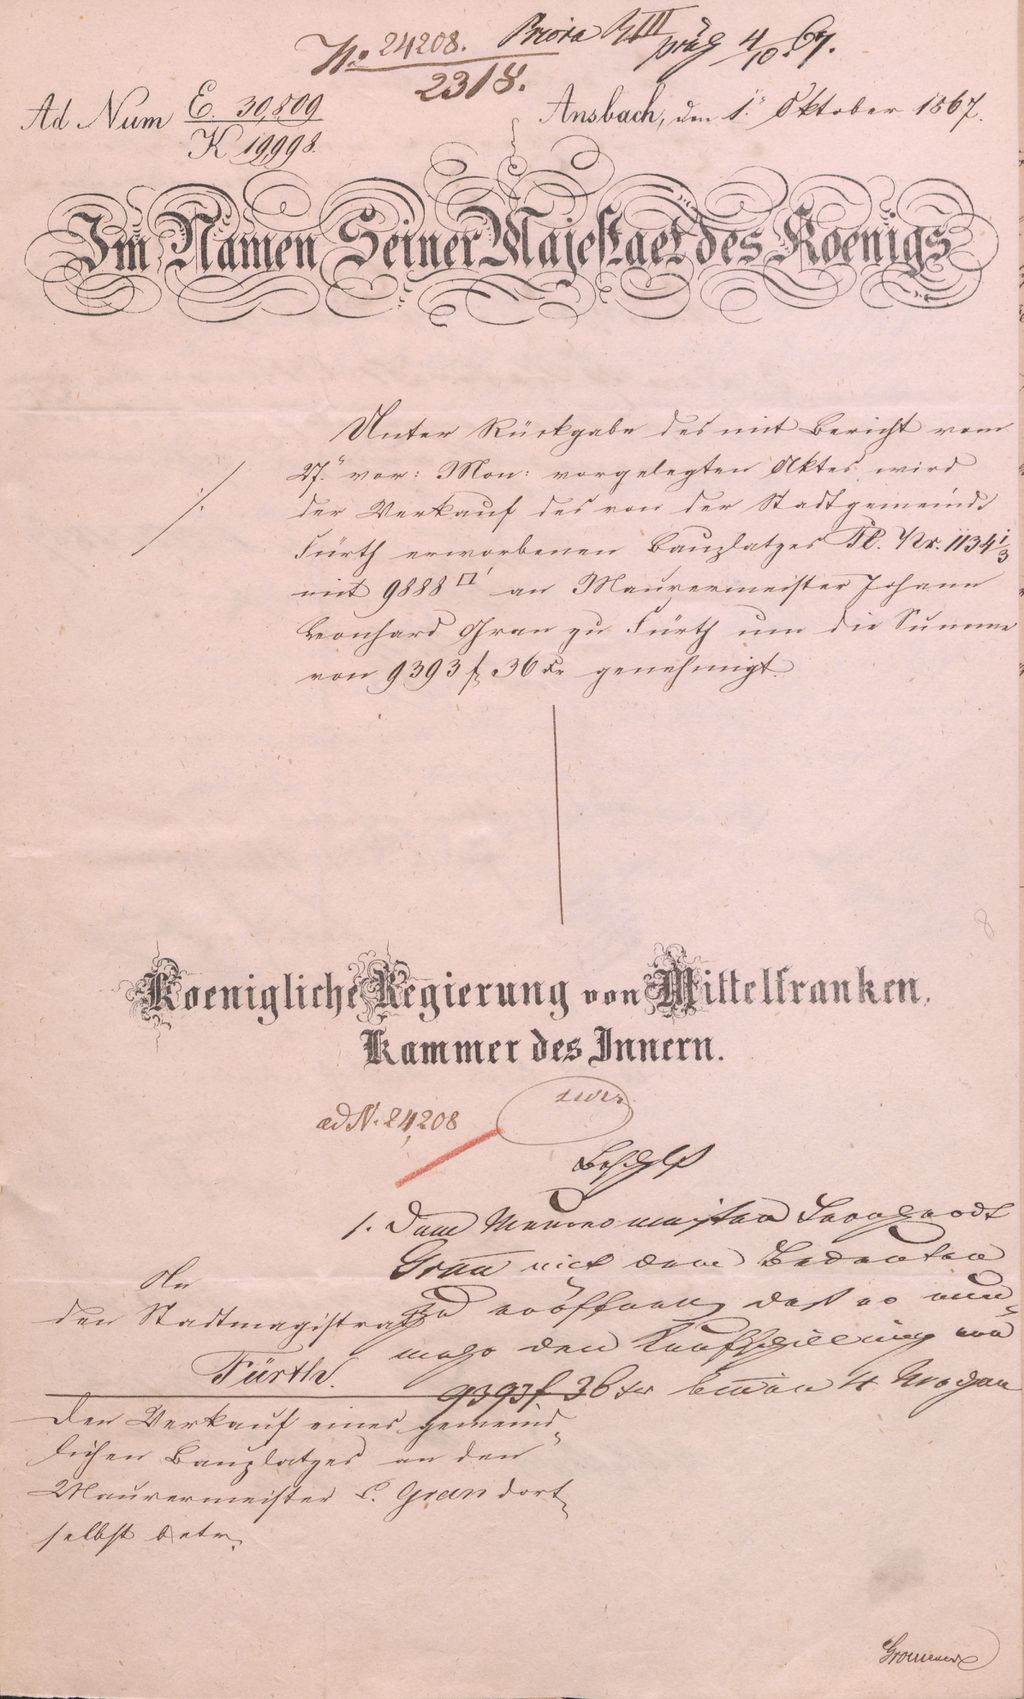 No. 24208. Priora R III präs 4/10. 67.
2318.
Ad Num E. 30,809 Ansbach, den 1. Oktober 1867.
K 19998.
Im Namen Seiner Majestaet des Koenigs
Unter Rückgabe des mit Bericht vom
27. vor: Mon: vorgelegten Aktes wird
der Verkauf des von der Stadtgemeinde
Fürth erworbenen Bauplatzes Pl. Nr. 1134 1/3
mit 9888 □' an Maurermeister Johann
Leonhard Gran zu Fürth um die Summe
von 9393 f 36 xr genehmigt.
Koenigliche Regierung von Mittelfranken,
Kammer des Innern.
ad N. 24208
Beschluß
1. Dem Maurermeister Leonhardt
Gran mit dem Bedeuten
zu eröffnen, daß er nun-
mehr den Kaufschilling von
9393 f 36 xr binnen 4 Wochen
An
den Stadtmagistrat
Fürth.
Den Verkauf eines gemeind-
lichen Bauplatzes an den
Maurermeister L. Gran dort-
selbst betr.